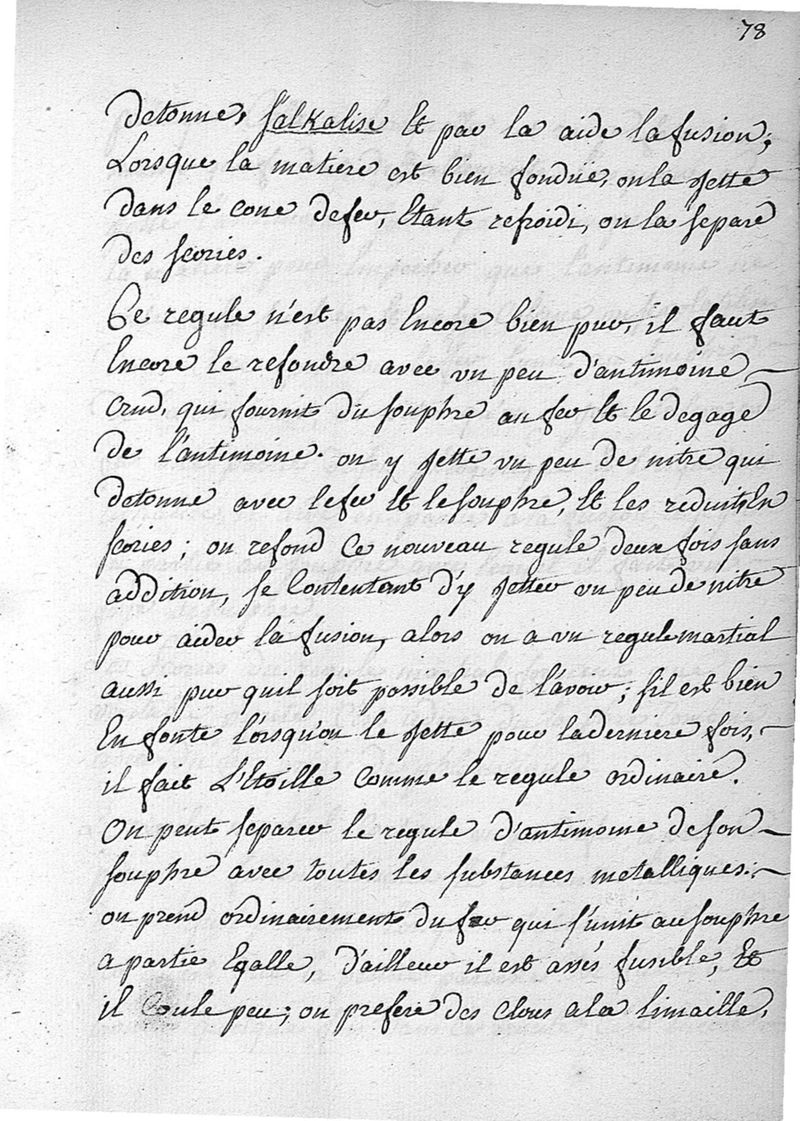 78
detonne, s'alkalise et par la aide la fusion;
Lorsque la matiere est bien fondüe, on la jette
dans le cone de fer, Etant refroidi, on la separe
des scories.
Ce regule n'est pas Encore bien pur, il faut
Encore le refondre avec un peu d'antimoine
Crud, qui fournit du souphre au fer et le degage
de l'antimoine. on y jette un peu de nitre qui
detonne avec le fer et le souphre, Et les reduits En
scories; on refond Ce nouveau regule deux fois sans
addition, se Contentant d'y jetter un peu de nitre
pour aider la fusion, alors on a un regule martial
aussi pur quil soit possible de l'avoir; s'il est bien
En fonte lorsqu'on le jette pour la derniere fois,
il fait L'Etoille Comme le regule ordinaire.
On peut separer le regule d'antimoine de son
souphre avec toutes les substances metalliques.
on prend ordinairements du fer qui s'unit au souphre
a partie Egalle, d'ailleur il est assés fusible, Et
il Coule peu; on prefere des clous a la limaille,